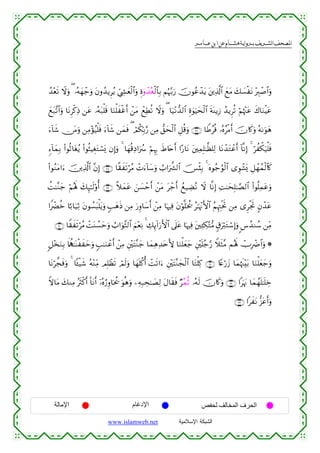 المصحف الشريف برواية هشام عن ابن عامر
وَٱصۡبِرۡ نَفۡسَكَ مَعَ ٱلَّذِينَ يَدۡعُونَ رَبَّهُم بِٱلۡغُدۡوَةِ وَٱلۡعَشِيِّ يُرِيدُونَ وَجۡهَهُۥۖ وَلَا تَعۡدُ
عَيۡنَاكَ عَنۡهُمۡ تُرِيدُ زِينَةَ ٱلۡحَيَوٰةِ ٱلدُّنۡيَاۖ وَلَا تُطِعۡ مَنۡ أَغۡفَلۡنَا قَلۡبَهُۥ عَن ذِكۡرِنَا وَٱتَّبَعَ
هَوَىٰهُ وَكَانَ أَمۡرُهُۥ فُرُطٗا وَقُلِ ٱلۡحَقُّ مِن رَّبِّكُمۡۖ فَمَن شَآءَ فَلۡيُؤۡمِن وَمَن شَآءَ
فَلۡيَكۡفُرۡۚ إِنَّآ أَعۡتَدۡنَا لِلظَّٰلِمِينَ نَارًا أَحَاطَ بِهِمۡ سُرَادِقُهَاۚ وَإِن يَسۡتَغِيثُواْ يُغَاثُواْ بِمَآءٖ
كَٱلۡمُهۡلِ يَشۡوِي ٱلۡوُجُوهَۚ بِئۡسَ ٱلشَّرَابُ وَسَآءَتۡ مُرۡتَفَقًا إِنَّ ٱلَّذِينَ ءَامَنُواْ
وَعَمِلُواْ ٱلصَّٰلِحَٰتِ إِنَّا لَا نُضِيعُ أَجۡرَ مَنۡ أَحۡسَنَ عَمَلًا أُوْلَٰٓئِكَ لَهُمۡ جَنَّٰتُ
عَدۡنٖ تَجۡرِي مِن تَحۡتِهِمُ ٱلۡأَنۡهَٰرُ يُحَلَّوۡنَ فِيهَا مِنۡ أَسَاوِرَ مِن ذَهَبٖ وَيَلۡبَسُونَ ثِيَابًا خُضۡرٗا
مِّن سُندُسٖ وَإِسۡتَبۡرَقٖ مُّتَّكِـِٔينَ فِيهَا عَلَى ٱلۡأَرَآئِكِۚ نِعۡمَ ٱلثَّوَابُ وَحَسُنَتۡ مُرۡتَفَقٗا
۞ وَٱضۡرِبۡ لَهُم مَّثَلٗا رَّجُلَيۡنِ جَعَلۡنَا لِأَحَدِهِمَا جَنَّتَيۡنِ مِنۡ أَعۡنَٰبٖ وَحَفَفۡنَٰهُمَا بِنَخۡلٖ
وَجَعَلۡنَا بَيۡنَهُمَا زَرۡعٗا كِلۡتَا ٱلۡجَنَّتَيۡنِ ءَاتَتۡ أُكُلَهَا وَلَمۡ تَظۡلِم مِّنۡهُ شَيۡـٔٗاۚ وَفَجَّرۡنَا
خِلَٰلَهُمَا نَهَرٗا وَكَانَ لَهُۥ ثُمُرٞ فَقَالَ لِصَٰحِبِهِۦ وَهُوَ يُحَاوِرُهُۥٓ أَنَا۠ أَكۡثَرُ مِنكَ مَالٗا
وَأَعَزُّ نَفَرٗا
الحرف المخالف لحفص الإدغام الإمالة
الشبكة الإسلامية www.islamweb.net